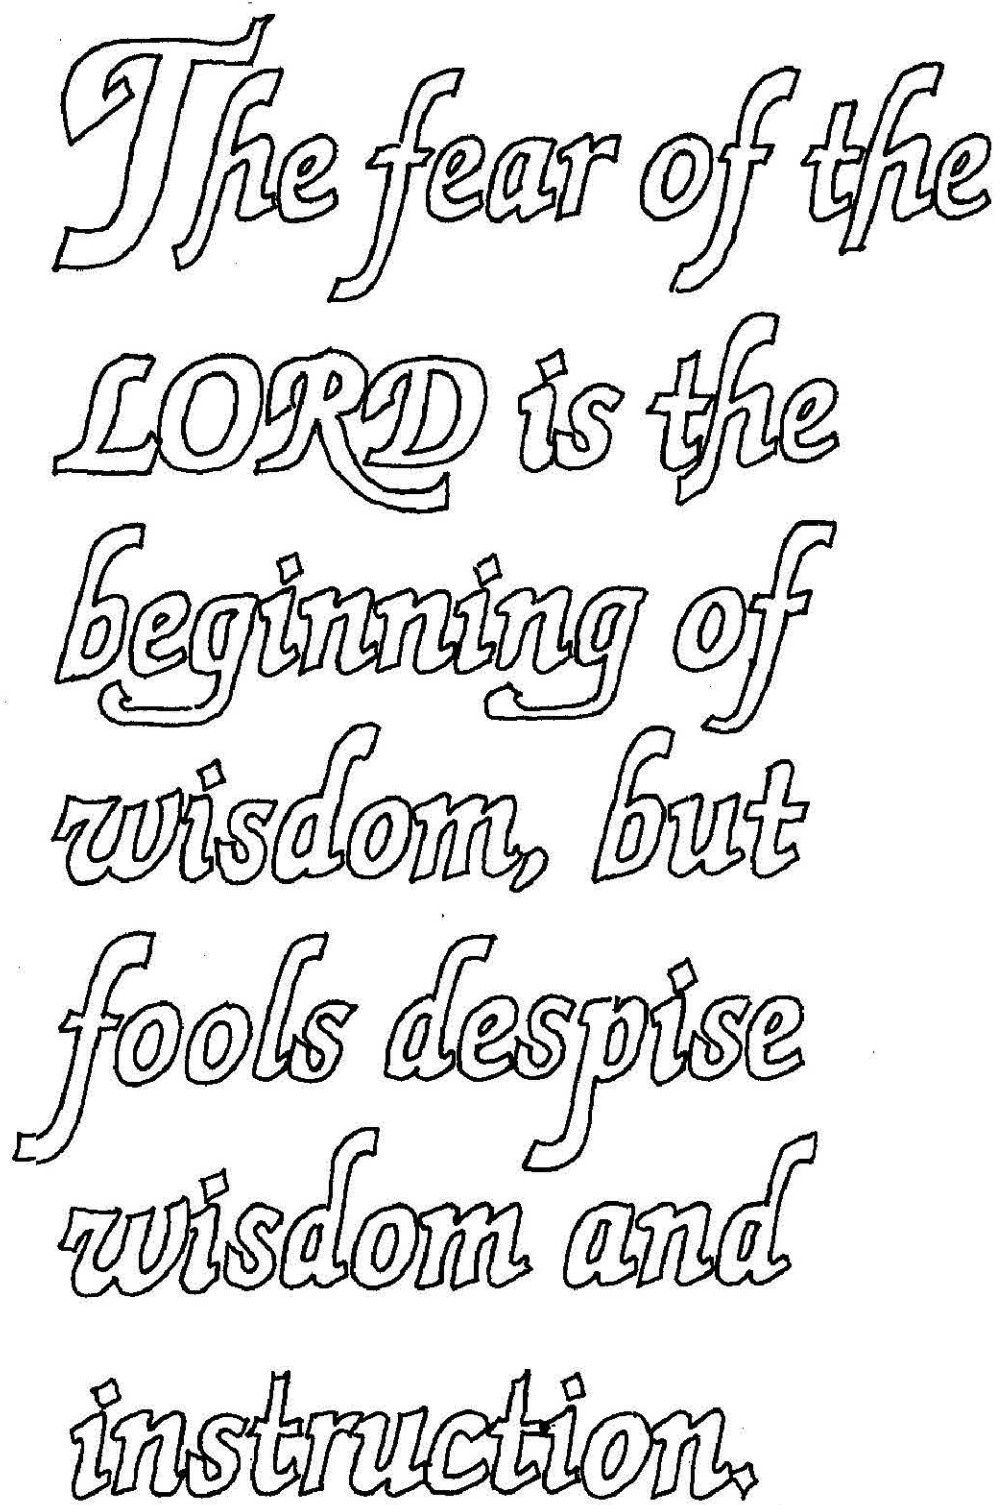 The fear of the
LORD is the
beginning of
wisdom, but
fools despise
wisdom and
instruction.